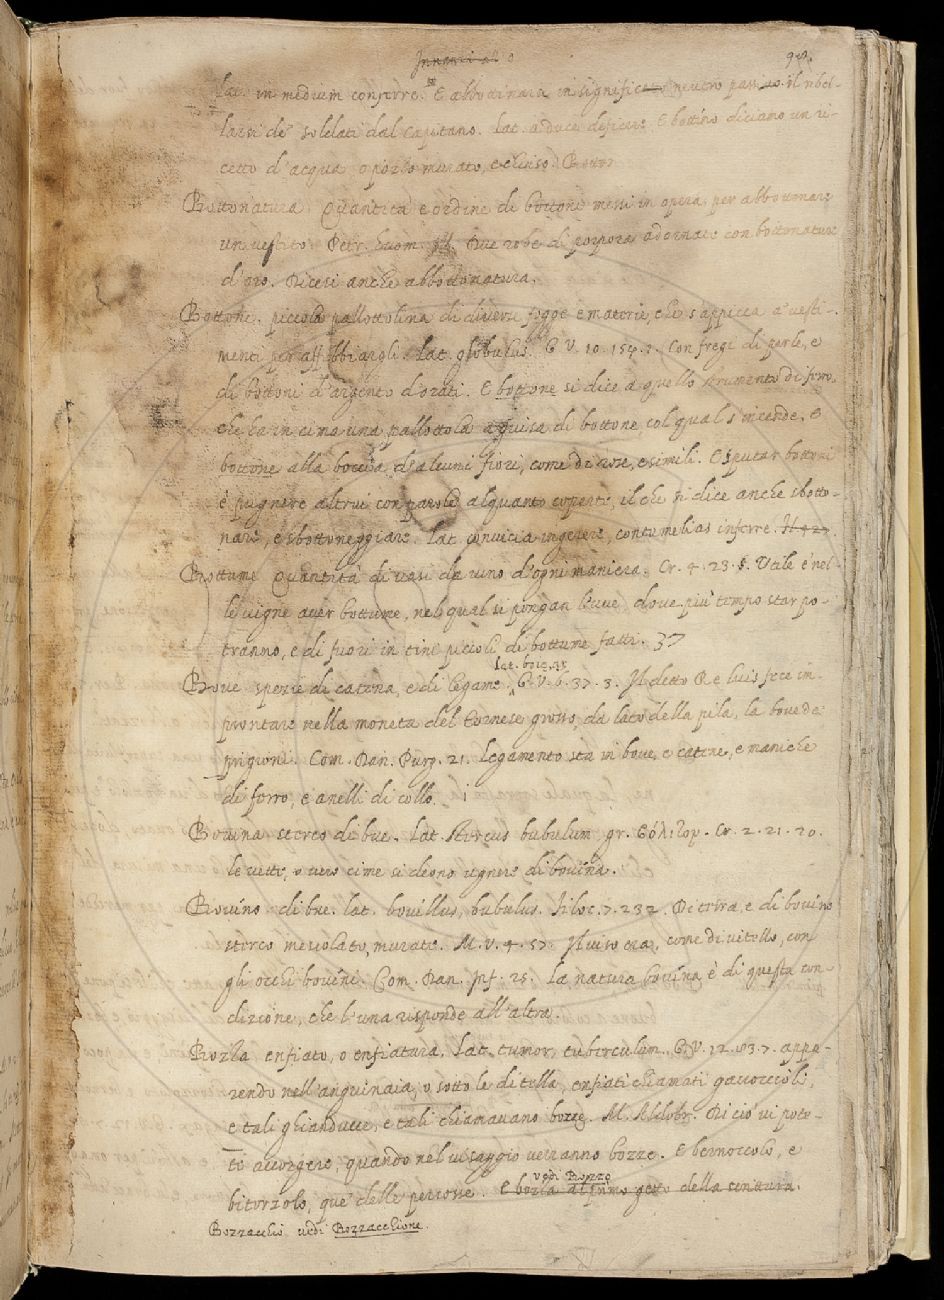 Innanzi al o 98.
lat. in medium conferre. E abbottinare in significato neutro passivo il ribel-
larsi de' soldati dal Capitano. Lat. a duce deficere. E bottino diciamo un ri-
cetto d'acqua o pozzo murato, e chiuso.
Bottonatura Quantità e ordine di bottoni messi in opera per abbottonare
un vestito. Petr. huom. ill. Due robe di porpora adornate con bottonature
d'oro. Dicesi anche abbottonatura.
Bottone. piccola pallottolina di diverse fogge e materie, che s'appicca a' vesti-
menti per affibbiargli. Lat. globulus. G. V. 10. 154. 1. Con fregi di perle, e
di bottoni d'argento dorati. E bottone si dice a quello strumento di ferro,
che ha in cima una pallottola a guisa di bottone col qual s'incende. E
bottone alla boccia d'alcuni fiori, come di rose, e simili. E sputar bottoni
è pugnere altrui con parole alquanto coperte, il che si dice anche sbotto-
nare, e sbottoneggiare. Lat. convicia ingerere, contumelias inferre.
Bottume Quantità di vasi da vino d'ogni maniera. Cr. 4. 23. 5. Utile è nel-
le vigne aver bottume, nel qual si pongan l'uve, dove più tempo star po-
tranno, e di fuori in tini piccoli di bottume fatti. 37
lat. boiae, ar
Bove spezie di catena, e di legame. G. V. 6. 37. 3. Il detto Re Luis fece im-
prontare nella moneta del Tornese grosso, da lato della pila, la bove da
prigioni. Com. Dan. Purg. 21. Legamento sta in bove, e catene, e maniche
di ferro, e anelli di collo.
Bovina sterco di bue. Lat. stercus bubulum gr. βόλιτον. Cr. 2. 21. 20.
le vette, o vero cime si deono ugnere di bovina.
Bovino di bue. lat. bovillus, bubulus. Filoc. 7. 232. Di terra, e di bovino
sterco mescolato, murate. M. V. 4. 57. Il viso era, come di vitello, con
gli occhi bovini. Com. Dan. Inf. 25. La natura bovina è di questa con-
dizione, che l'una risponde all'altra.
Bozza enfiato, o enfiatura. Lat. tumor, tuberculum. G. V. 12. 83. 7. appa-
rendo nell'anguinaia, o sotto le ditella, enfiati chiamati gavoccioli,
e tali ghianducce, e tali chiamavano bozze. M. Aldobr. Di ciò vi pote-
te accorgere, quando nel visaggio verranno bozze. E bernoccolo, e
vedi Bozzo
bitorzolo, que' delle percosse. E bozza al primo getto della scrittura.
Bozzacchio vedi Bozzacchione.